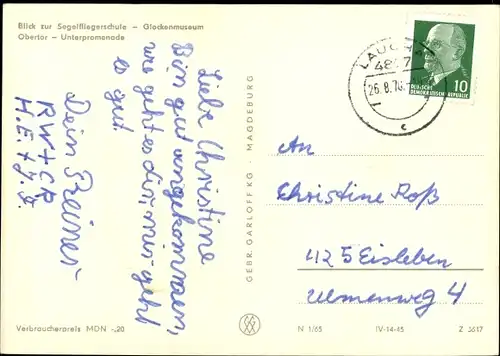 Blick zur Segelfliegerschule – Glockenmuseum
Obertor – Unterpromenade
Liebe Christine
Bin gut angekommen,
wie geht es dir, mir geht
es gut.
Dein Reiner
RW + CR
H.E. + J.S.
Verbraucherpreis MDN -.20
GEBR. GARLOFF KG · MAGDEBURG
LAUCHA
26.8.70
c
DEUTSCHE
DEMOKRATISCHE REPUBLIK
10
An
Christine Roß
425 Eisleben
Ulmenweg 4
N 1/65
IV-14-45
Z 3617